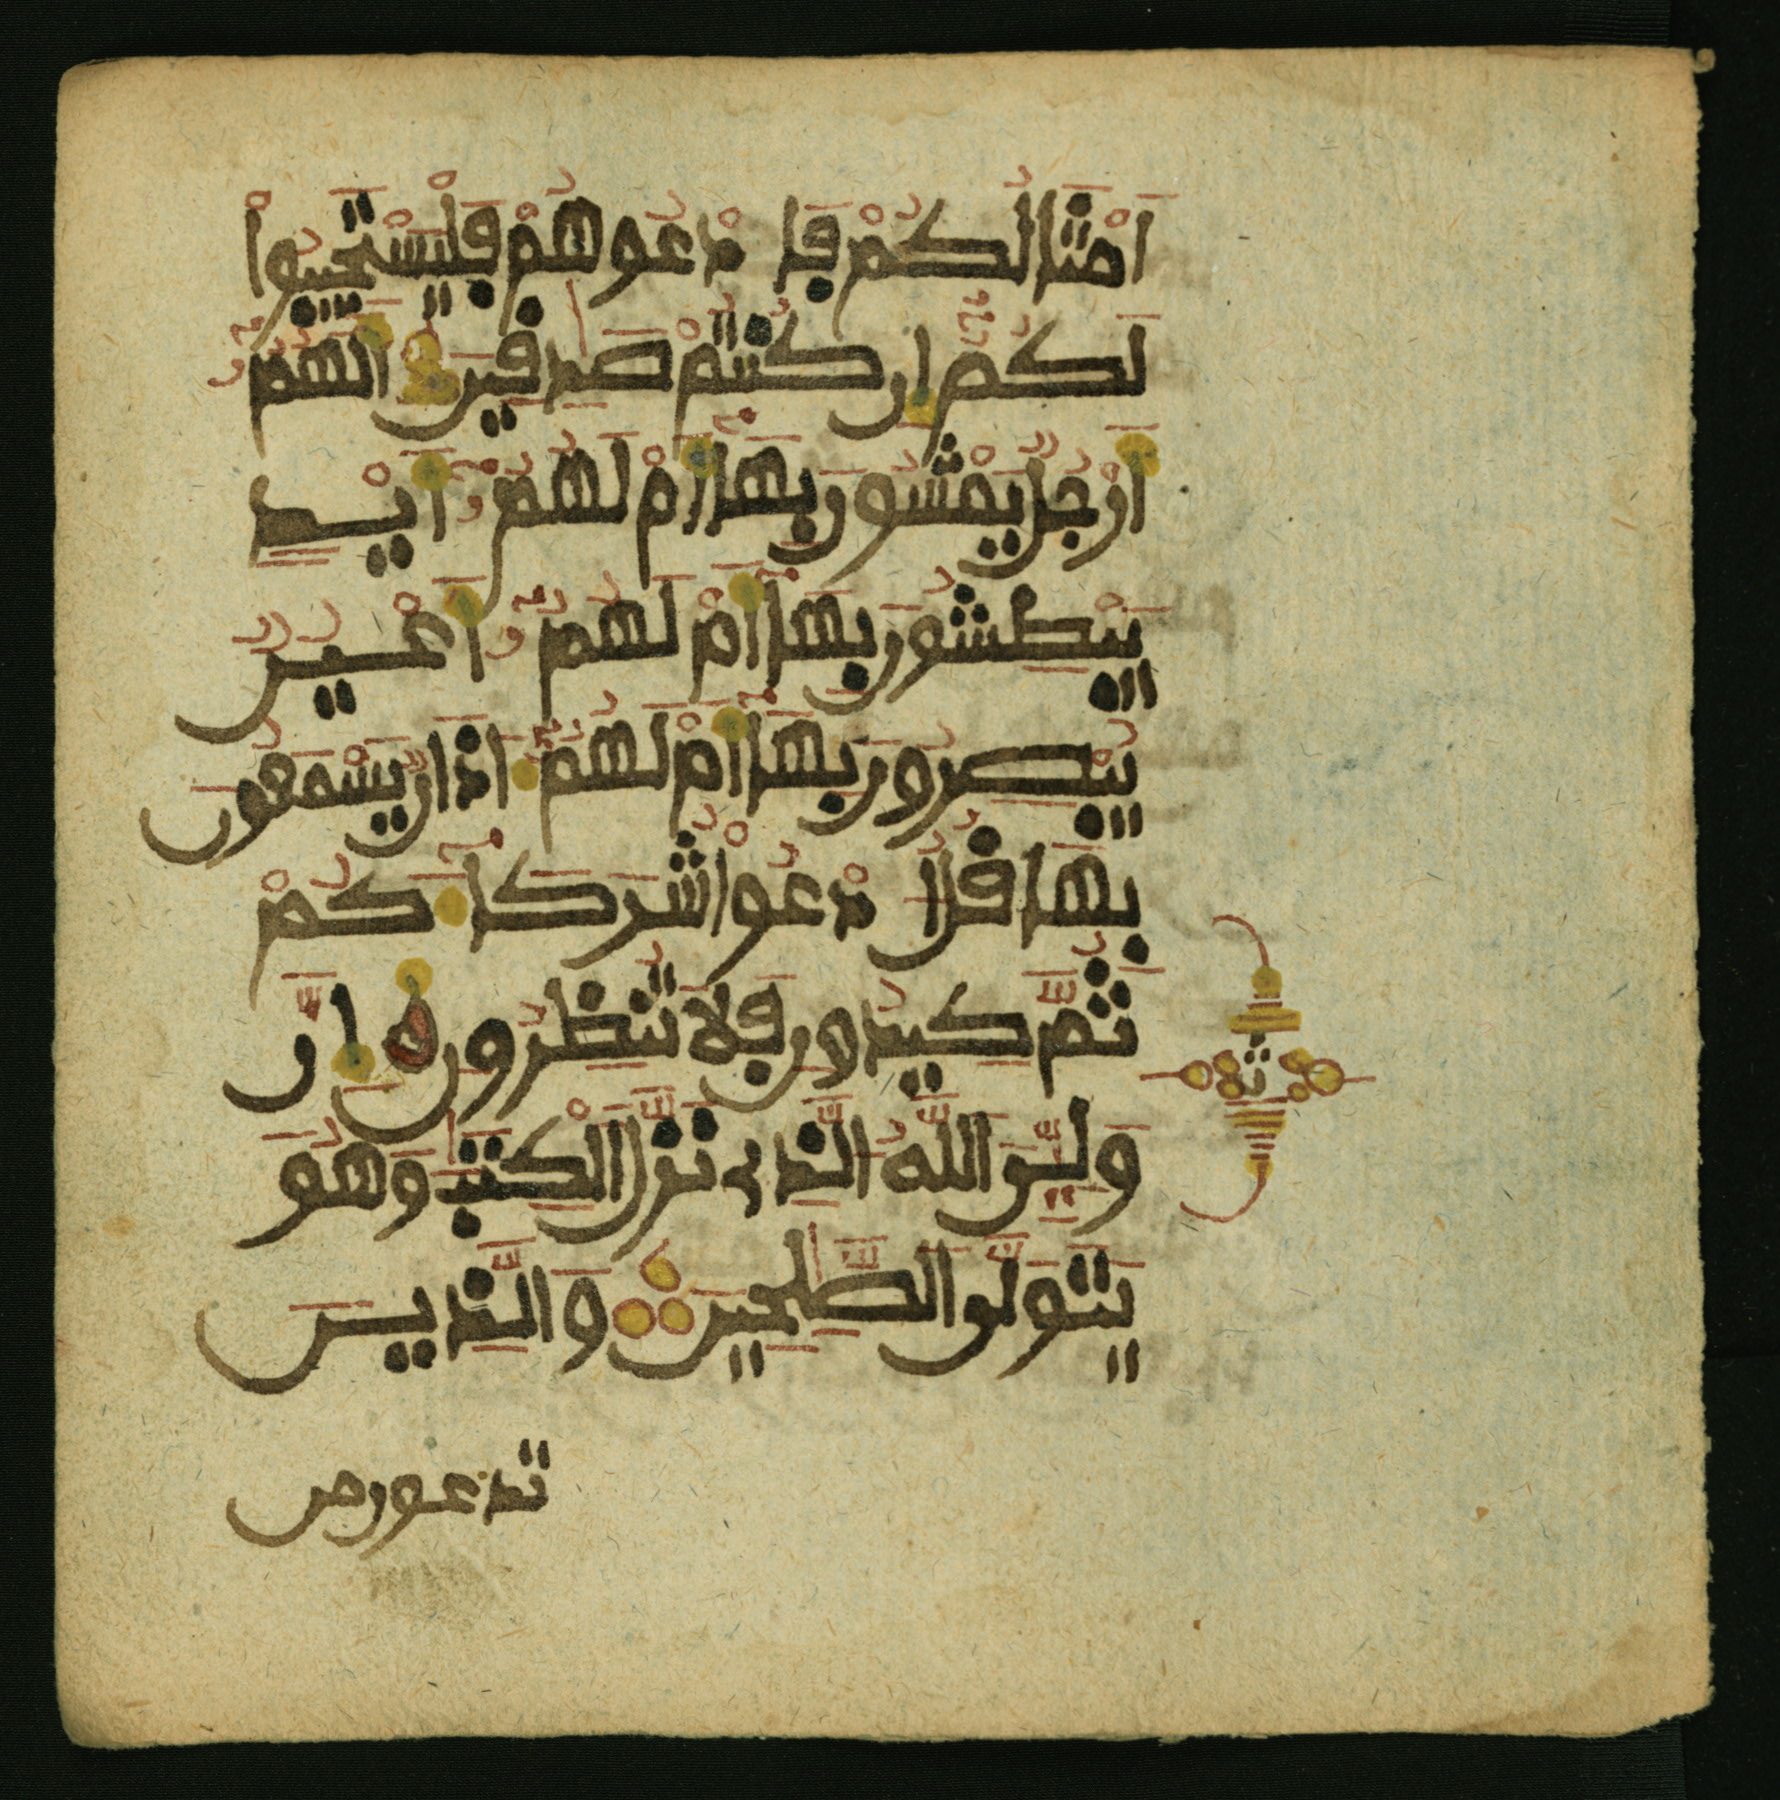 أَمْثَالُكُمْ فَادْعُوهُمْ فَلْيَسْتَجِيبُواْ
لَكُمُۥ إِن كُنتُمْ صَٰدِقِينَ أَلَهُمُۥ
أَرْجُلٌ يَمْشُونَ بِهَا أَمْ لَهُمُۥ أَيْدٍ
يَبْطُشُونَ بِهَا أَمْ لَهُمُۥ أَعْيُنٌ
يُبْصِرُونَ بِهَا أَمْ لَهُمُۥ ءَاذَانٌ يَسْمَعُونَ
بِهَا قُلُ ادْعُواْ شُرَكَاءَكُمْ
ثُمَّ كِيدُونِ فَلَا تُنظِرُونِ إِنَّ
وَلِيِّيَ اللَّهُ الَّذِي نَزَّلَ الْكِتَٰبَ وَهُوَ
ث
يَتَوَلَّى الصَّٰلِحِينَ وَالَّذِينَ
تدعون من